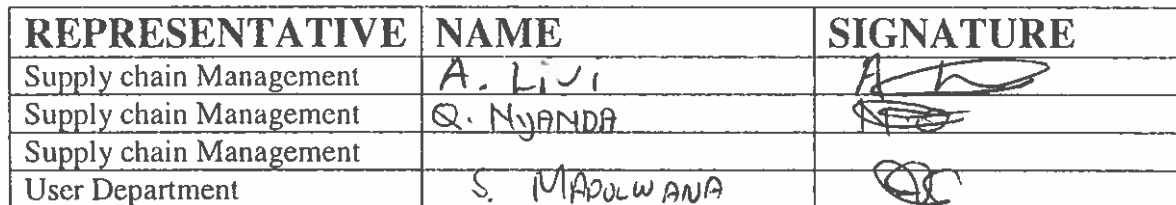 REPRESENTATIVE NAME SIGNATURE
Supply chain Management A. Livi
Supply chain Management Q. NyANDA
Supply chain Management
User Department S. MAPULWANA